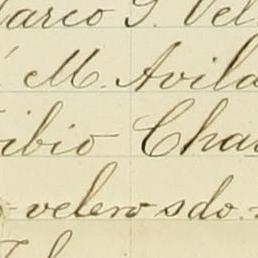 arco G. Vel
M. Avila
ibio Cha
velero sdo.